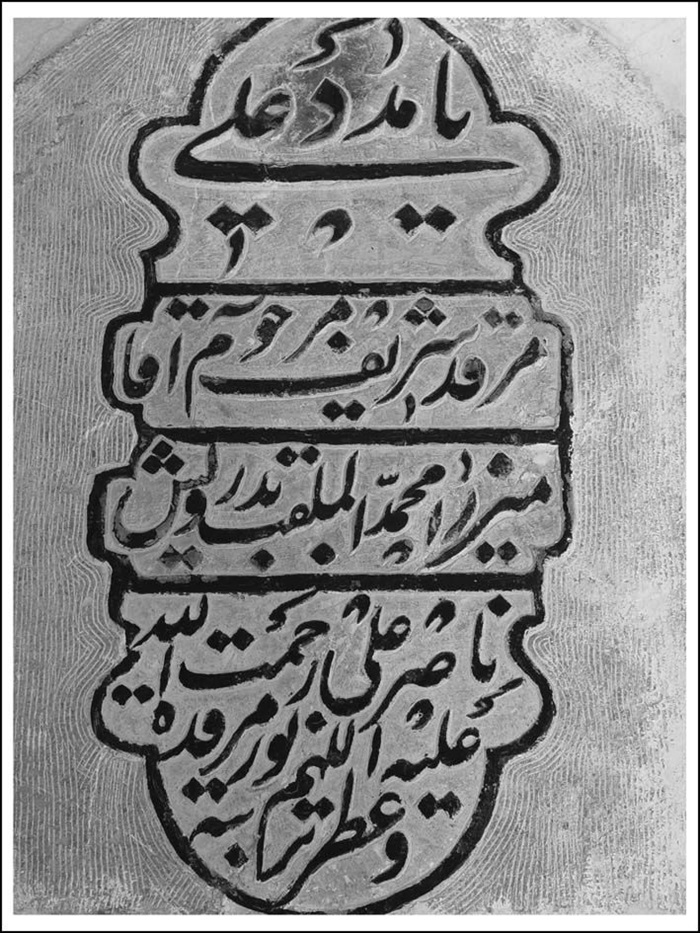 یا علی مدد
مرقد شریف مرحوم آقا
میرزا محمد الملقب بدرویش
ناصر علی رحمت الله
علیه اللهم نور مرقده
و عطر تربته